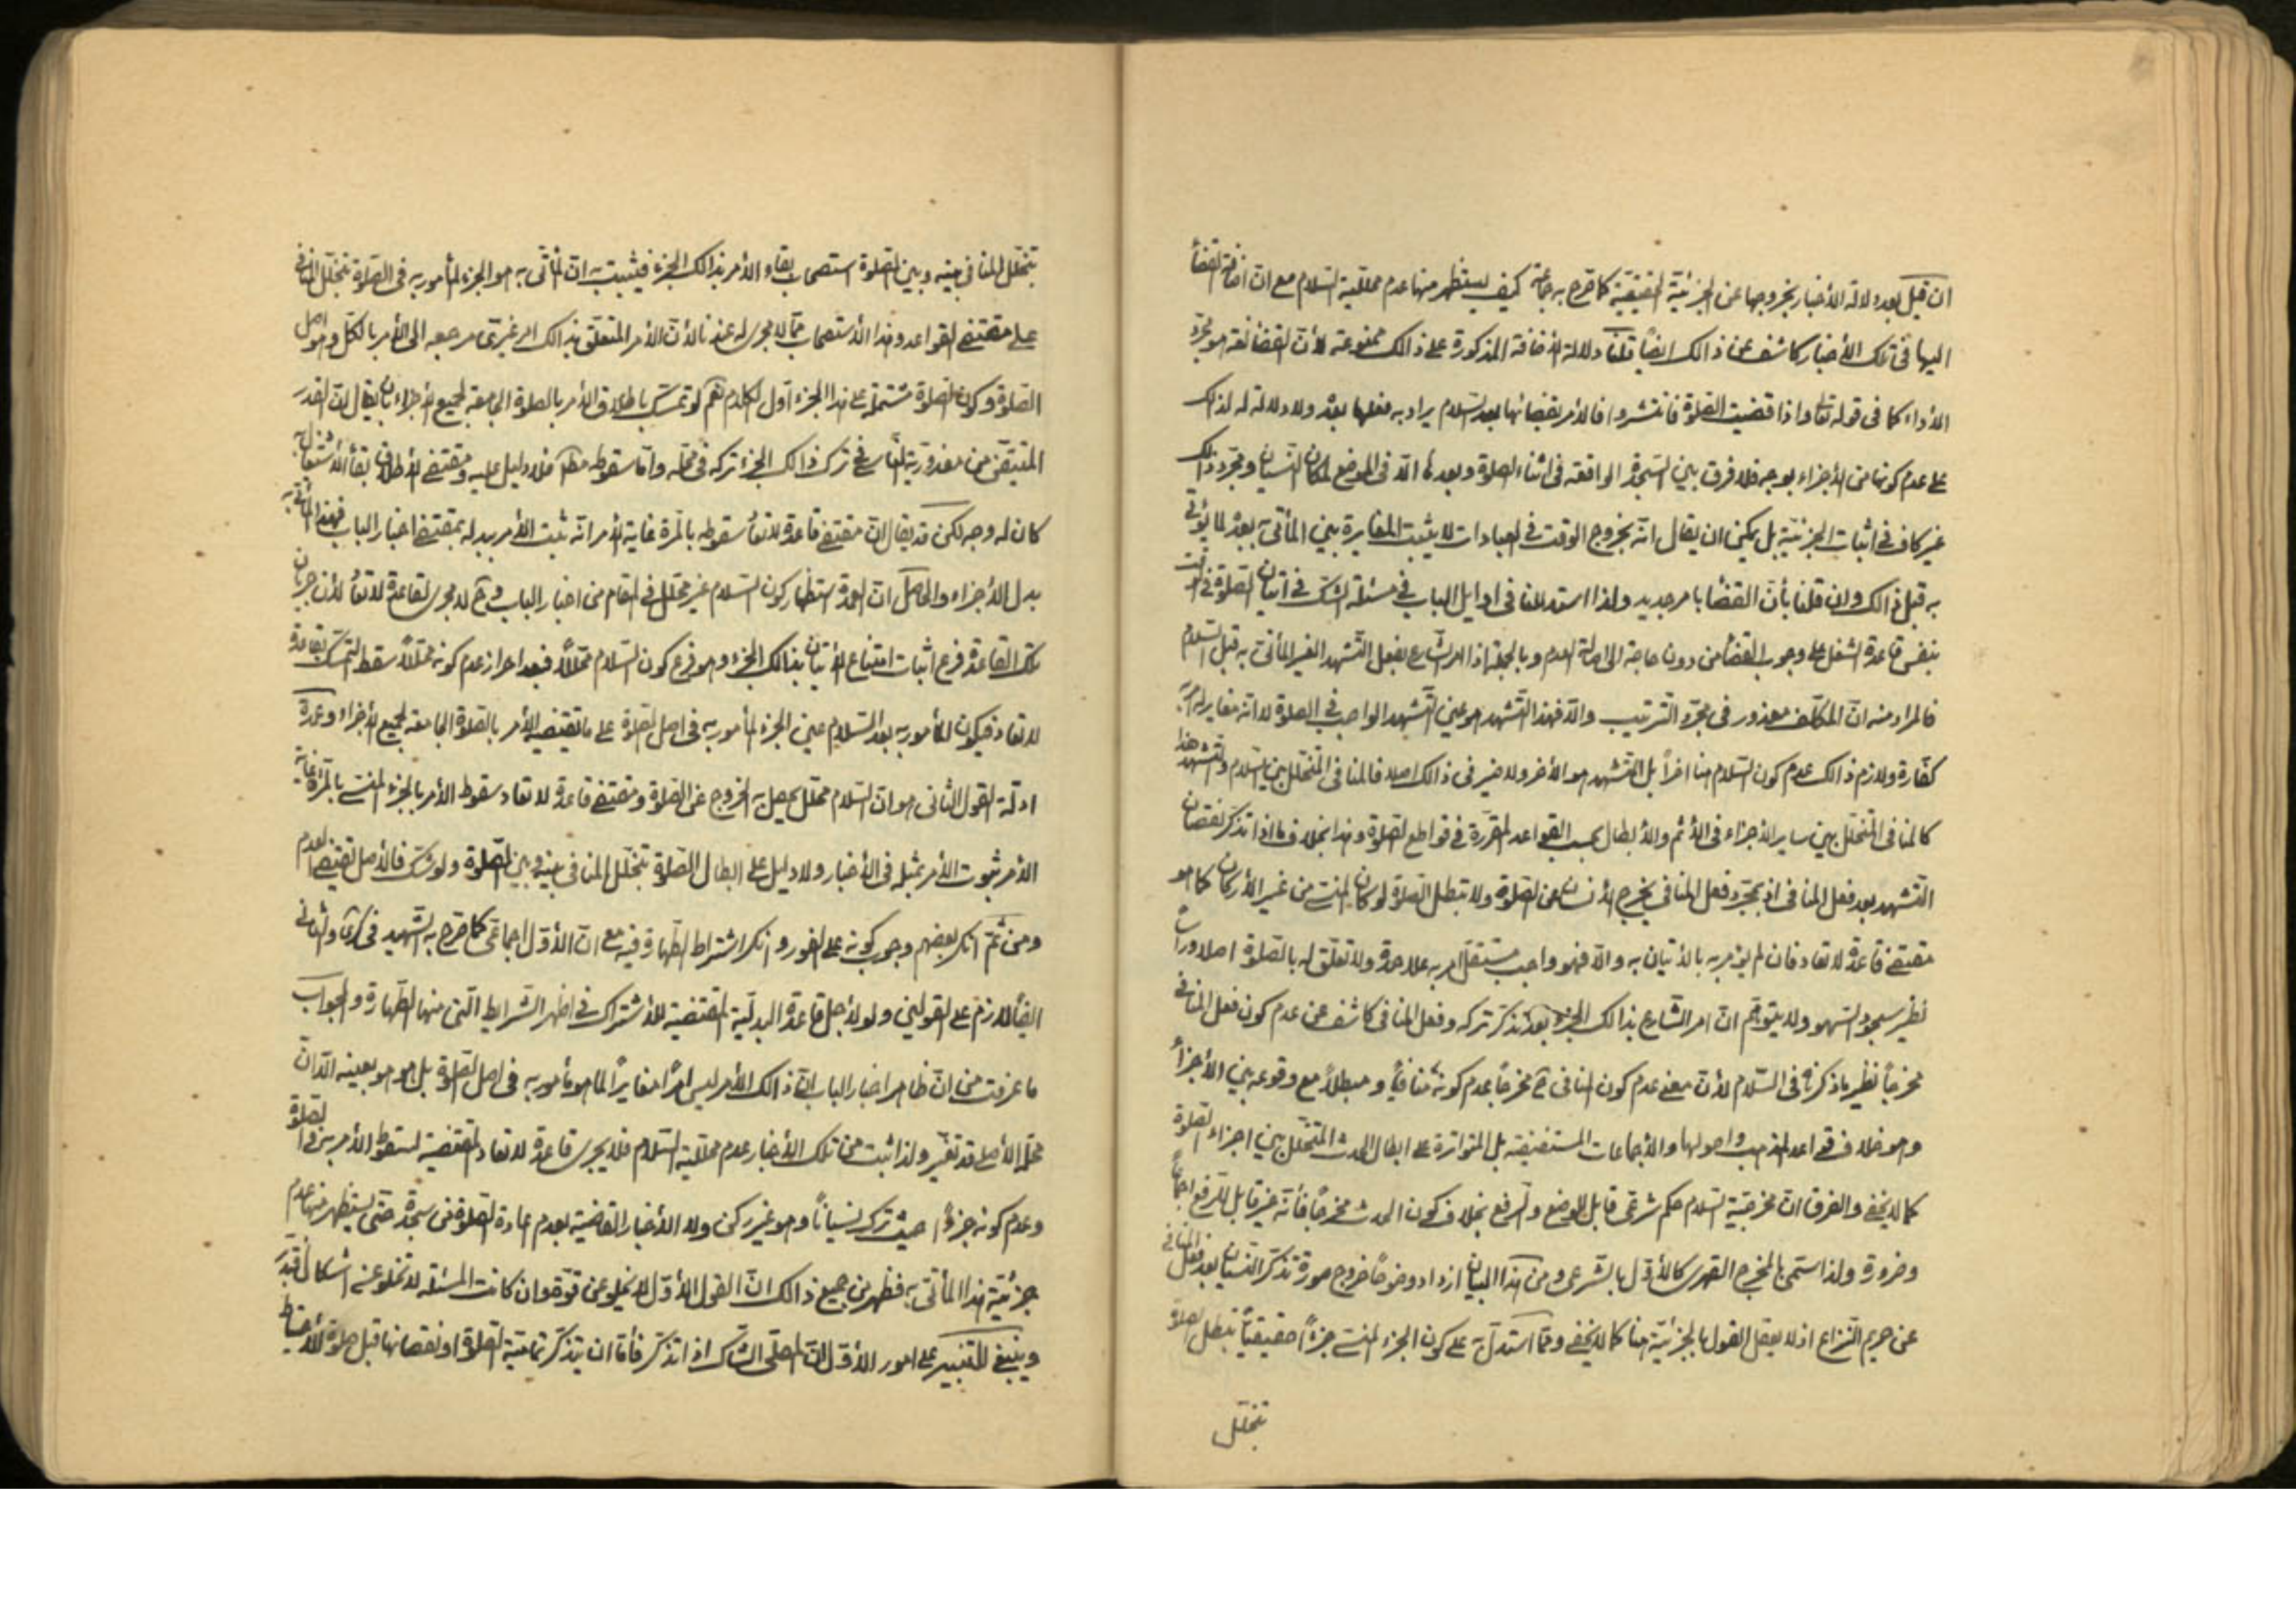 ان قيل بعد دلالة الأخبار بخروجها عن الجزئية الحقيقية كما صرح به جماعة كيف يستظهر منها عدم محللية السلام مع ان اضافة القضأ
اليها في تلك الأخبار كاشف عن ذالك ايضاً قلنا دلالة الأضافة المذكورة على ذالك ممنوعة لأن القضا لغة هو مجرد
الأداء كما في قوله تعالى واذا قضيت الصلوة فانتشروا فالأمر بقضائها بعد السلام يراد به فعلها بعده ولا دلالة له لذالك
على عدم كونها من الأجزاء بوجه فلا فرق بين السجدة الواقعة في اثناء الصلوة وبعدها الا في الموضع لمكان النسيان ومجرد ذالك
غير كاف في اثبات الجزئية بل يمكن ان يقال انه بخروج الوقت في العبادات لا يثبت المغايرة بين المأتى به بعده لما يؤتى
به قبل ذالك وان قلنا بأن القضأ بامر جديد ولذا استدللنا في اوايل الباب في مسئلة الشك في اتيان الصلوة في الوقت
بنفس قاعدة الشغل على وجوب القضأ من دون حاجة الى اصالة العدم وبالجملة اذا امر الشارع بفعل التشهد الغير المأتى به قبل السلام
فالمراد منه ان المكلف معذور في مجرد الترتيب والا فهذا التشهد هو عين التشهد الواجب في الصلوة لا انه مغاير له
كفارة ولازم ذالك عدم كون السلام هنا اخراً بل التشهد هو الأخر ولا ضير في ذالك اصلا فالمنافى المتخلل بين السلام والتشهد هذا
كالمنافى المتخلل بين ساير الأجزاء في الأثم والأبطال بحسب القواعد المقررة في قواطع الصلوة وهذا بخلاف ما اذا تذكر نقصان
التشهد بعد فعل المنافى اذ بمجرد فعل المنافى يخرج الأنسان عن الصلوة ولا تبطل الصلوة لو كان المنسى من غير الأركان كما هو
مقتضى قاعدة لا تعاد فان لم يؤمر به بالأتيان به والا فهو واجب مستقل امر به علاحدة ولا تعلق له بالصلوة اصلا وراسا
نظير سجود السهو ولا يتوهم ان امر الشارع بذالك الجزء بعد تذكر تركه وفعل المنافى كاشف عن عدم كون فعل المنافى
مخرجاً نظير ما ذكرناه في السلام لأن معنى عدم كون المنافى ح مخرجاً عدم كونه منافياً ومبطلاً مع وقوعه بين الأجزأ
وهو خلاف قواعد المذهب واصولها والأجماعات المستفيضة بل المتواترة على ابطال الحدث المتخلل بين اجزاء الصلوة
كما لا يخفى والفرق ان مخرجية السلام حكم شرعى قابل للوضع والرفع بخلاف كون الحدث مخرجاً فأنه غير قابل للرفع اجماعاً
وضرورة ولذا سمى بالمخرج القهرى كالأول بالشرعى ومن هذا البيان ازداد وضوحاً خروج صورة تذكر النسيان بعد فعل المنافى
عن حريم النزاع اذ لا يعقل القول بالجزئية هنا كما لا يخفى ومما استدل به على كون الجزء المنسى جزءً حقيقياً تبطل الصلوة
تتخلل
بتخلل المنافى بينه وبين الصلوة استصحاب بقاء الأمر بذالك الجزء فيثبت به ان المأتى به هو الجزء المأمور به في الصلوة بتخلل المنافى
على مقتضى القواعد وهذا الأستصحاب مما لا مجرى له عندنا لأن الأمر المتعلق بذالك امر غيرى مرجعه الى الأمر بالكل وهو اصل
الصلوة وكون الصلوة مشتملة على هذا الجزء اول الكلام نعم لو تمسك باطلاق الأمر بالصلوة الجامعة لجميع الأجزاء بان يقال ان القدر
المتيقن من معذورية الناسى في ترك ذالك الجزء تركه في محله واما سقوطه مطلقا فلا دليل عليه ومقتضى الأطلاق بقأ الأشتغال به
كان له وجه لكن قد يقال ان مقتضى قاعدة لا تعاد سقوطه بالمرة غاية الأمر انه ثبت الأمر ببدله بمقتضى اخبار الباب فهذا المأتى به
بدل الأجزاء والحاصل ان العمدة استظهار كون السلام غير محلل في المقام من اخبار الباب وح لا مجرى لقاعدة لا تعاد لأن جريان
تلك القاعدة فرع اثبات امتناع الأتيان بذالك الجزء وهو فرع كون السلام محللاً فبعد احراز عدم كونه محللاً سقط التمسك بقاعدة
لا تعاد فيكون المأمور به بعد السلام عين الجزء المأمور به في اصل الصلوة على ما يقتضيه الأمر بالصلوة الجامعة لجميع الأجزاء وعمدة
ادلة القول الثانى هو ان السلام محلل يحصل به الخروج عن الصلوة ومقتضى قاعدة لا تعاد سقوط الأمر بالجزء المنسى بالمرة غاية
الأمر ثبوت الأمر بمثله في الأخبار ولا دليل على ابطال الصلوة بتخلل المنافى بينه وبين الصلوة ولو شك فالأصل يقتضى العدم
ومن ثم انكر بعضهم وجوب كونه على الفور وانكر اشتراط الطهارة فيه مع ان الأول اجماعى كما صرح به الشهيد في كرى والثانى
ايضاً لازم على القولين ولو لأجل قاعدة البدلية المقتضية للأشتراك في اظهر الشرايط التى منها الطهارة والجواب
ما عرفت من ان ظاهر اخبار الباب ان ذالك الأمر ليس امراً مغايراً لما هو مأمور به في اصل الصلوة بل هو هو بعينه الا ان
محله الأصلى قد تغير ولذا ثبت من تلك الأخبار عدم محللية السلام فلا يجرى قاعدة لا تعاد المقتضية لسقوط الأمر بين الصلوة
وعدم كونه جزءً حيث ترك نسياناً وهو غير ركن ولا الأخبار القاضية بعدم اعادة الصلوة من سجدة حتى يستظهر منها عدم
جزئية هذا المأتى به فظهر من جميع ذالك ان القول الأول لا يخلو عن قوة وان كانت المسئلة لا تخلو عن اشكال فتدبر
وينبغى التنبيه على امور الأول ان المصلى الشاك اذا تذكر فأما ان يتذكر تمامية الصلوة او نقصانها قبل صلوة الأحتياط